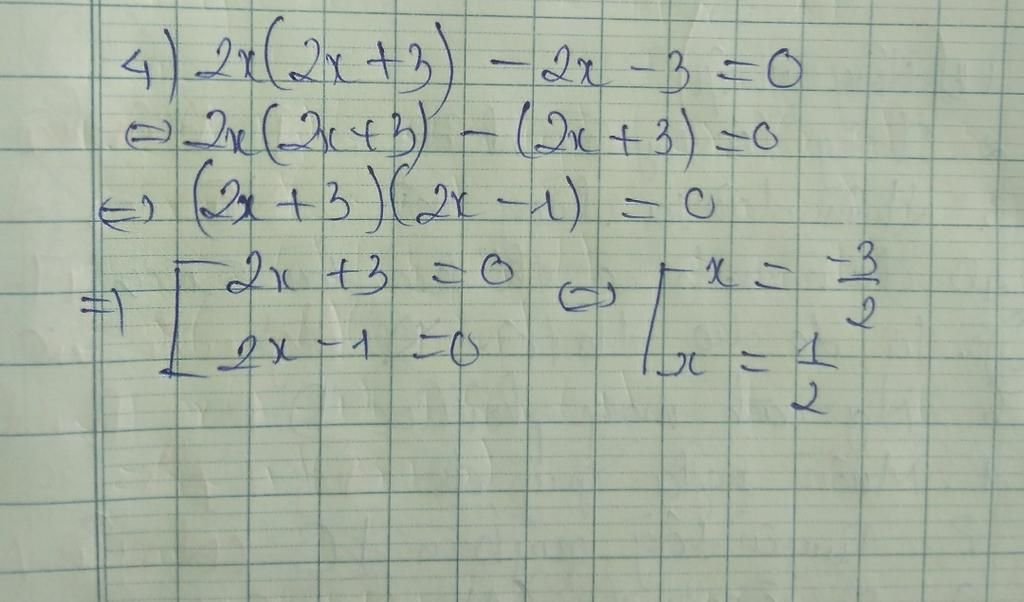 4) 2x(2x+3) - 2x - 3 = 0
⇔ 2x(2x+3) - (2x+3) = 0
⇔ (2x+3)(2x-1) = 0
⇒ [ 2x+3 = 0 ⇔ [ x = -3/2
2x-1 = 0 x = 1/2